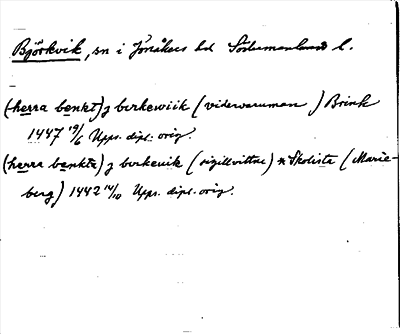 Björkvik, sn i Jönåkers hd Södermanland l.
(herra benkt) j berkewiik (viderwaruman) Brink
1447 19/6 Upps. dipl. orig.
(herra benkte) j berkeuik (sigillvittne) n Skolista (Marie-
berg) 1442 14/10 Upps. dipl. orig.